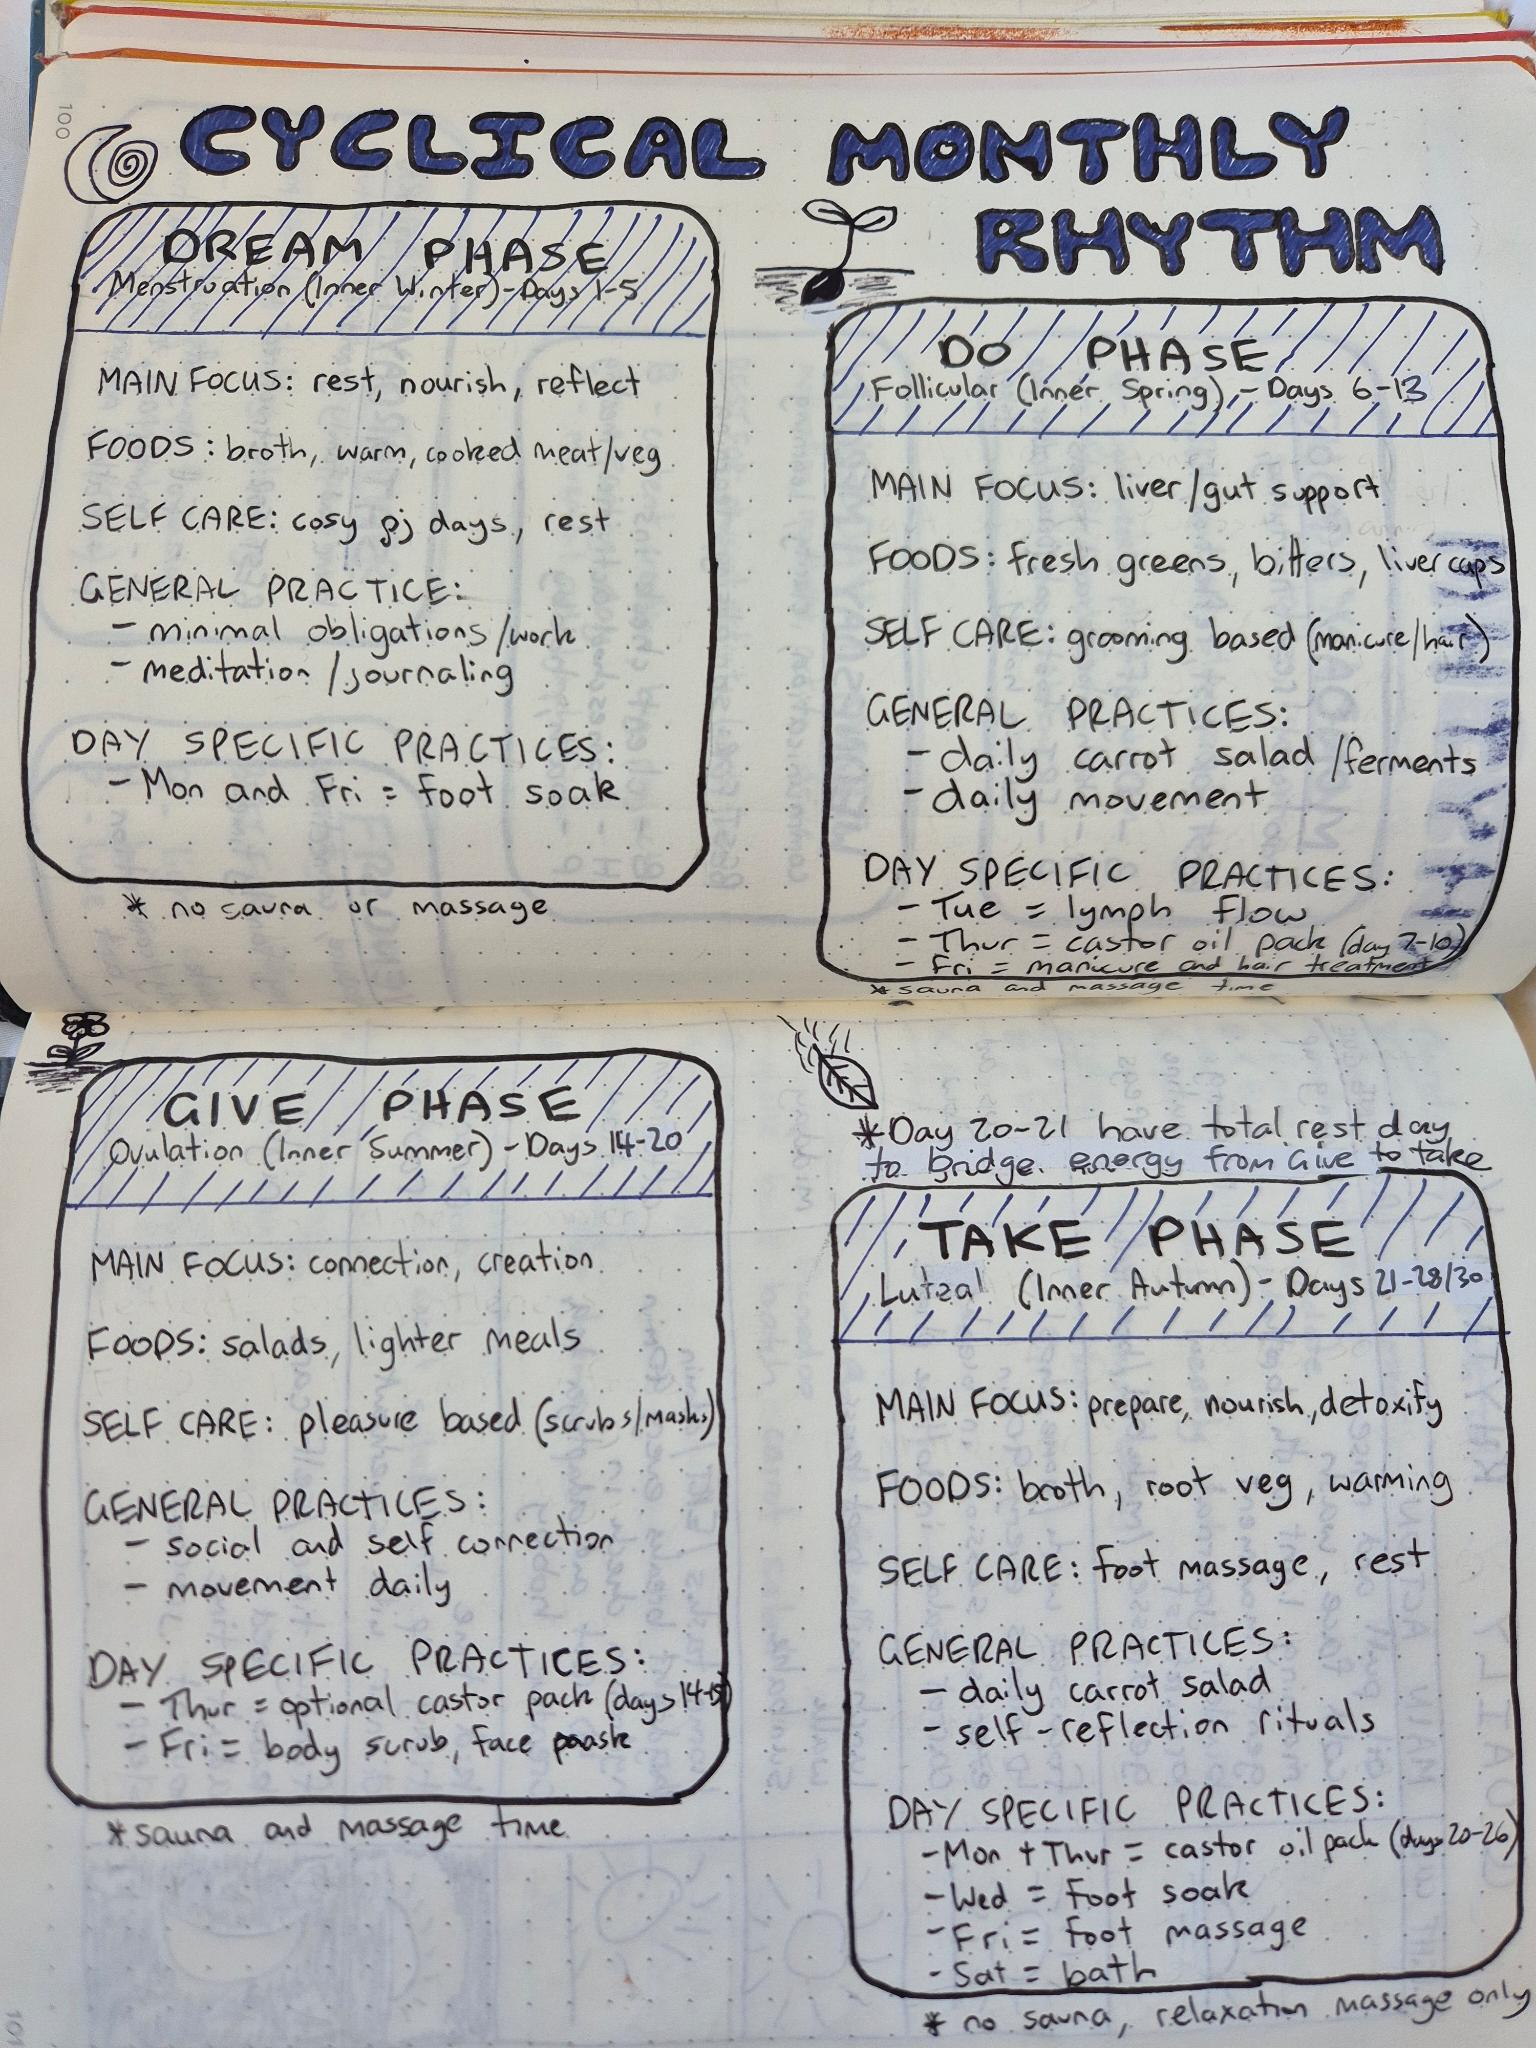 100
CYCLICAL MONTHLY
RHYTHM
DREAM PHASE
Menstruation (Inner Winter) - Days 1-5
MAIN FOCUS: rest, nourish, reflect
FOODS: broth, warm, cooked meat/veg
SELF CARE: cosy pj days, rest
GENERAL PRACTICE:
- minimal obligations/work
- meditation/journaling
DAY SPECIFIC PRACTICES:
- Mon and Fri = foot soak
* no sauna or massage
DO PHASE
Follicular (Inner Spring) - Days 6-13
MAIN FOCUS: liver/gut support
FOODS: fresh greens, bitters, liver caps
SELF CARE: grooming based (manicure/hair)
GENERAL PRACTICES:
- daily carrot salad/ferments
- daily movement
DAY SPECIFIC PRACTICES:
- Tue = lymph flow
- Thur = castor oil pack (day 7-10)
- Fri = manicure and hair treatment
* sauna and massage time
GIVE PHASE
Ovulation (Inner Summer) - Days 14-20
MAIN FOCUS: connection, creation
FOODS: salads, lighter meals
SELF CARE: pleasure based (scrubs/masks)
GENERAL PRACTICES:
- social and self connection
- movement daily
DAY SPECIFIC PRACTICES:
- Thur = optional castor pack (days 14-15)
- Fri = body scrub, face mask
* sauna and massage time
* Day 20-21 have total rest day
to bridge energy from Give to take
TAKE PHASE
Luteal (Inner Autumn) - Days 21-28/30
MAIN FOCUS: prepare, nourish, detoxify
FOODS: broth, root veg, warming
SELF CARE: foot massage, rest
GENERAL PRACTICES:
- daily carrot salad
- self-reflection rituals
DAY SPECIFIC PRACTICES:
- Mon + Thur = castor oil pack (days 20-26)
- Wed = foot soak
- Fri = foot massage
- Sat = bath
* no sauna, relaxation massage only
101